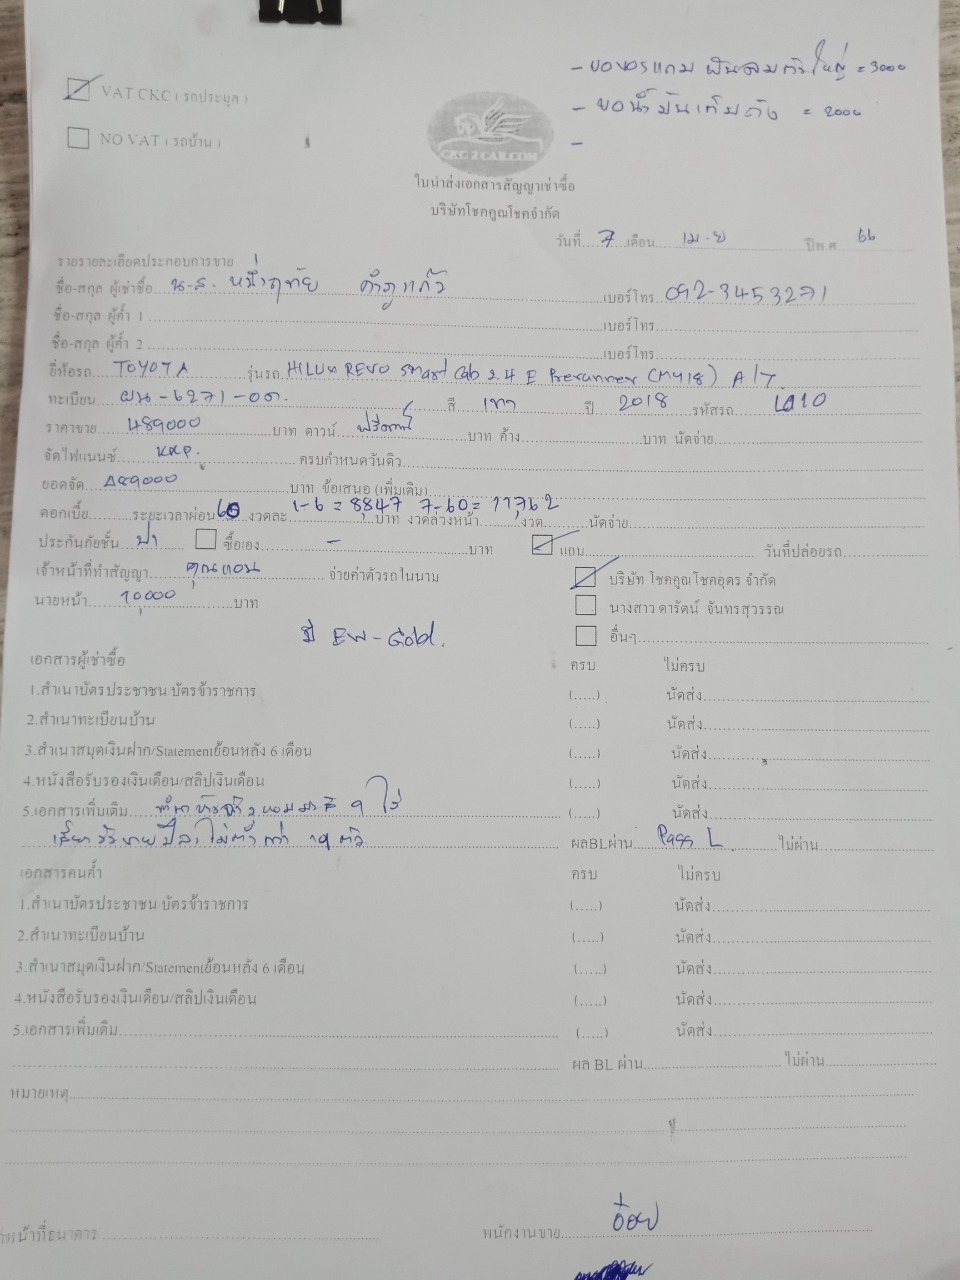 - ขอของแถม พัดลมตัวใหญ่ = 3000
VAT CKC ( รถประมูล )
- ขอน้ำมันเต็มถัง = 2000
NO VAT ( รถบ้าน )
-
CKC 2 CAR.COM
ใบนำส่งเอกสารสัญญาเช่าซื้อ
บริษัทโชคคูณโชคจำกัด
วันที่ 7 เดือน เม.ย ปีพ.ศ 66
รายรายละเอียดประกอบการขาย
ชื่อ-สกุล ผู้เช่าซื้อ น.ส. หนึ่งฤทัย เบอร์โทร 092-3453271
ชื่อ-สกุล ผู้ค้ำ 1 เบอร์โทร
ชื่อ-สกุล ผู้ค้ำ 2 เบอร์โทร
ยี่ห้อรถ TOYOTA รุ่นรถ HILUX REVO Smart Cab 2.4 E Prerunner (MY18) A/T.
ทะเบียน ผน-6271-อด. สี เทา ปี 2018 รหัสรถ
ราคาขาย 489000 บาท ดาวน์ ฟรีดาวน์ บาท ค้าง บาท นัดจ่าย
จัดไฟแนนซ์ KKP. ครบกำหนดวันดิว
ยอดจัด 489000 บาท ข้อเสนอ (เพิ่มเติม)
ดอกเบี้ย ระยะเวลาผ่อน 60 งวดละ 1-6 = 8,847 7-60 = 11,762 บาท งวดล่วงหน้า งวด นัดจ่าย
ประกันภัยชั้น ป1 ซื้อเอง - บาท แถม วันที่ปล่อยรถ
เจ้าหน้าที่ทำสัญญา คุณแอน จ่ายค่าตัวรถในนาม บริษัท โชคคูณโชคอุดร จำกัด
นายหน้า 10,000 บาท นางสาว ดารัตน์ จันทรสุวรรณ
มี EW-Gold. อื่นๆ
เอกสารผู้เช่าซื้อ ครบ ไม่ครบ
1.สำเนาบัตรประชาชน/บัตรข้าราชการ (.....) นัดส่ง
2.สำเนาทะเบียนบ้าน (.....) นัดส่ง
3.สำเนาสมุดเงินฝาก/Statementย้อนหลัง 6 เดือน (.....) นัดส่ง
4.หนังสือรับรองเงินเดือน/สลิปเงินเดือน (.....) นัดส่ง
5.เอกสารเพิ่มเติม ทำนาข้าวจ้าวหอมมะลิ 9 ไร่ (.....) นัดส่ง
เลี้ยงวัวขายปีละไม่ต่ำกว่า ตัว ผลBLผ่าน Pass L ไม่ผ่าน
เอกสารคนค้ำ ครบ ไม่ครบ
1.สำเนาบัตรประชาชน/บัตรข้าราชการ (.....) นัดส่ง
2.สำเนาทะเบียนบ้าน (.....) นัดส่ง
3.สำเนาสมุดเงินฝาก/Statementย้อนหลัง 6 เดือน (.....) นัดส่ง
4.หนังสือรับรองเงินเดือน/สลิปเงินเดือน (.....) นัดส่ง
5.เอกสารเพิ่มเติม (.....) นัดส่ง
ผล BL ผ่าน ไม่ผ่าน
หมายเหตุ
หน้าที่ธนาคาร พนักงานขาย อ้อย